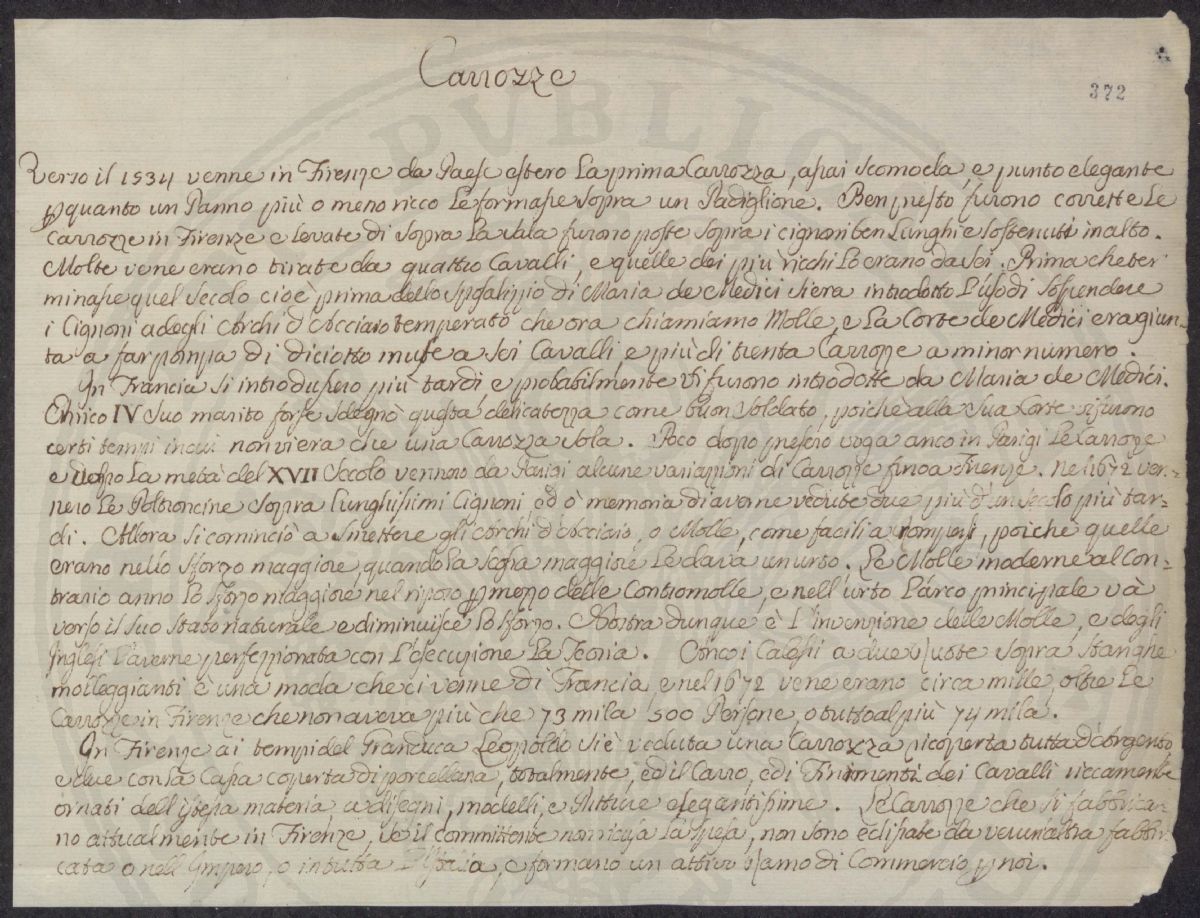 Carrozze
372
Verso il 1534 venne in Firenze da Paese estero La prima Carrozza, assai scomoda, e punto elegante
pquanto un Panno più o meno ricco Le formasse sopra un Padiglione. Ben presto furono corrette Le
Carrozze in Firenze e levate di sopra La sala furono poste sopra i cignoni ben Lunghi e sostenuti in alto.
Molte vene erano tirate da quattro Cavalli, e quelle dei più ricchi Lo erano da sei. Prima che ter
minasse quel secolo cioè prima dello Spsalizzio di Maria de Medici si era introdotto L'uso di sospendere
i Cignoni adegli Archi d'Acciaio temperato che ora chiamiamo Molle, e La Corte de Medici era giun-
ta a far pompa di diciotto mute a sei Cavalli e più di trenta Carrozze a minor numero.
In Francia si introdussero più tardi e probabilmente vi furono introdotte da Maria de Medici.
Enrico IV suo marito forse sdegnò questa delicatezza come buon soldato, poichè alla sua Corte vi furono
certi tempi in cui non viera che una Carrozza sola. Poco dopo presero voga anco in Parigi Le Carrozze
e dopo La metà del XVII Secolo vennero da Parigi alcune variazzioni di Carrozze fino a Firenze. Nel 1672 ven-
nero Le Poltroncine sopra Lunghissimi Cignoni, ed ò memoria di averne vedute due più d'un secolo più tar-
di. Allora si cominciò a smettere gli Archi d'Acciaio, o Molle, come facili a rompersi, poichè quelle
erano nello sforzo maggiore, quando La scossa maggiore Le dava un urto. Le Molle moderne al Con-
trario anno Lo sforzo maggiore nel riposo p mezzo delle Contromolle, e nell'urto L'arco principale và
verso il suo stato naturale e diminuisce Lo sforzo. Nostra dunque è L'invenzione delle Molle, e degli
Inglesi L'averne perfezzionata con L'esecuzione La Teoria. Anco i Calessi a due ruote sopra Stanghe
molleggianti è una moda che ci venne di Francia, e nel 1672 vene erano circa mille, oltre Le
Carrozze in Firenze che non aveva più che 73 mila 500 Persone, o tutto al più 74 mila.
In Firenze ai tempi del Granduca Leopoldo si è veduta una Carrozza ricoperta tutta d'Argento
e due con La Cassa coperta di porcellana, totalmente, ed il Carro, e di Finimenti dei Cavalli riccamente
ornati dell'istessa materia a disegni, modelli, e Pitture elegantissime. Le Carrozze che si fabbrica-
no attualmente in Firenze, se il committente non ricusa La spesa, non sono eclissate da verun'altra fabbri
cata o nell'Impero, o in tutta L'Italia, e formano un attivo ramo di Commercio p noi.